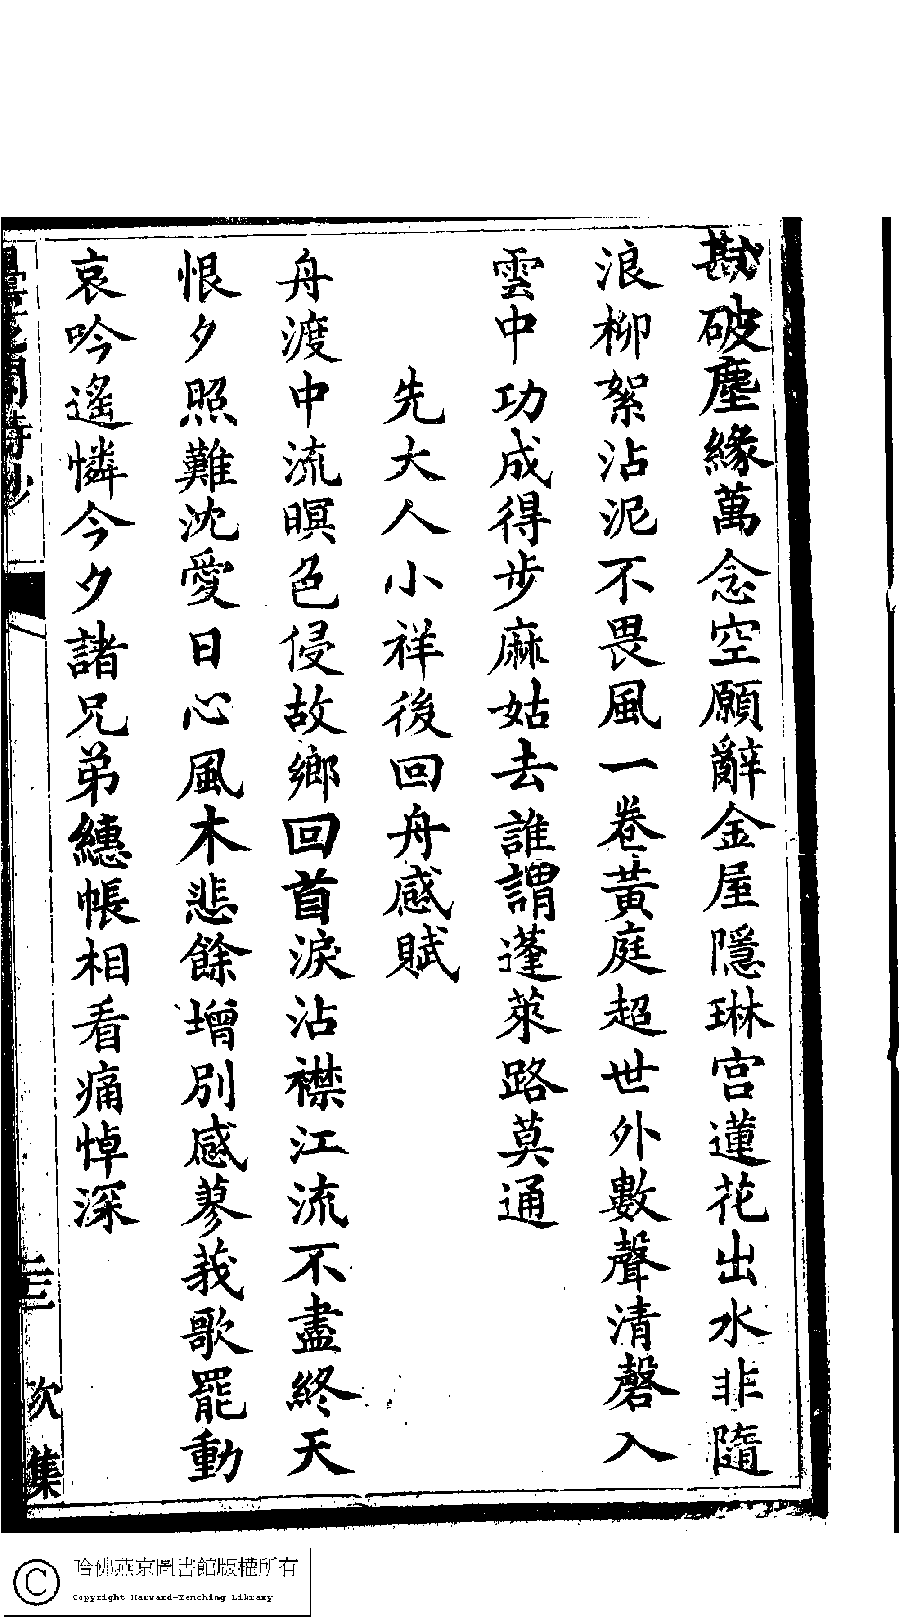 戡破塵緣萬念空願辭金屋隱琳宮蓮花出水非隨
浪柳絮沾泥不畏風一卷黃庭超世外數聲清磬入
雲中功成得步麻姑去誰謂蓬萊路莫通
先大人小祥後回舟感賦
舟渡中流暝色侵故鄉回首淚沾襟江流不盡終天
恨夕照難沈愛日心風木悲餘增別感蓼莪歌罷動
哀吟遙憐今夕諸兄弟繐帳相看痛悼深
之閣詩鈔
三 次集
哈佛燕京圖書館版權所有
Copyright Harvard-Yenching Library